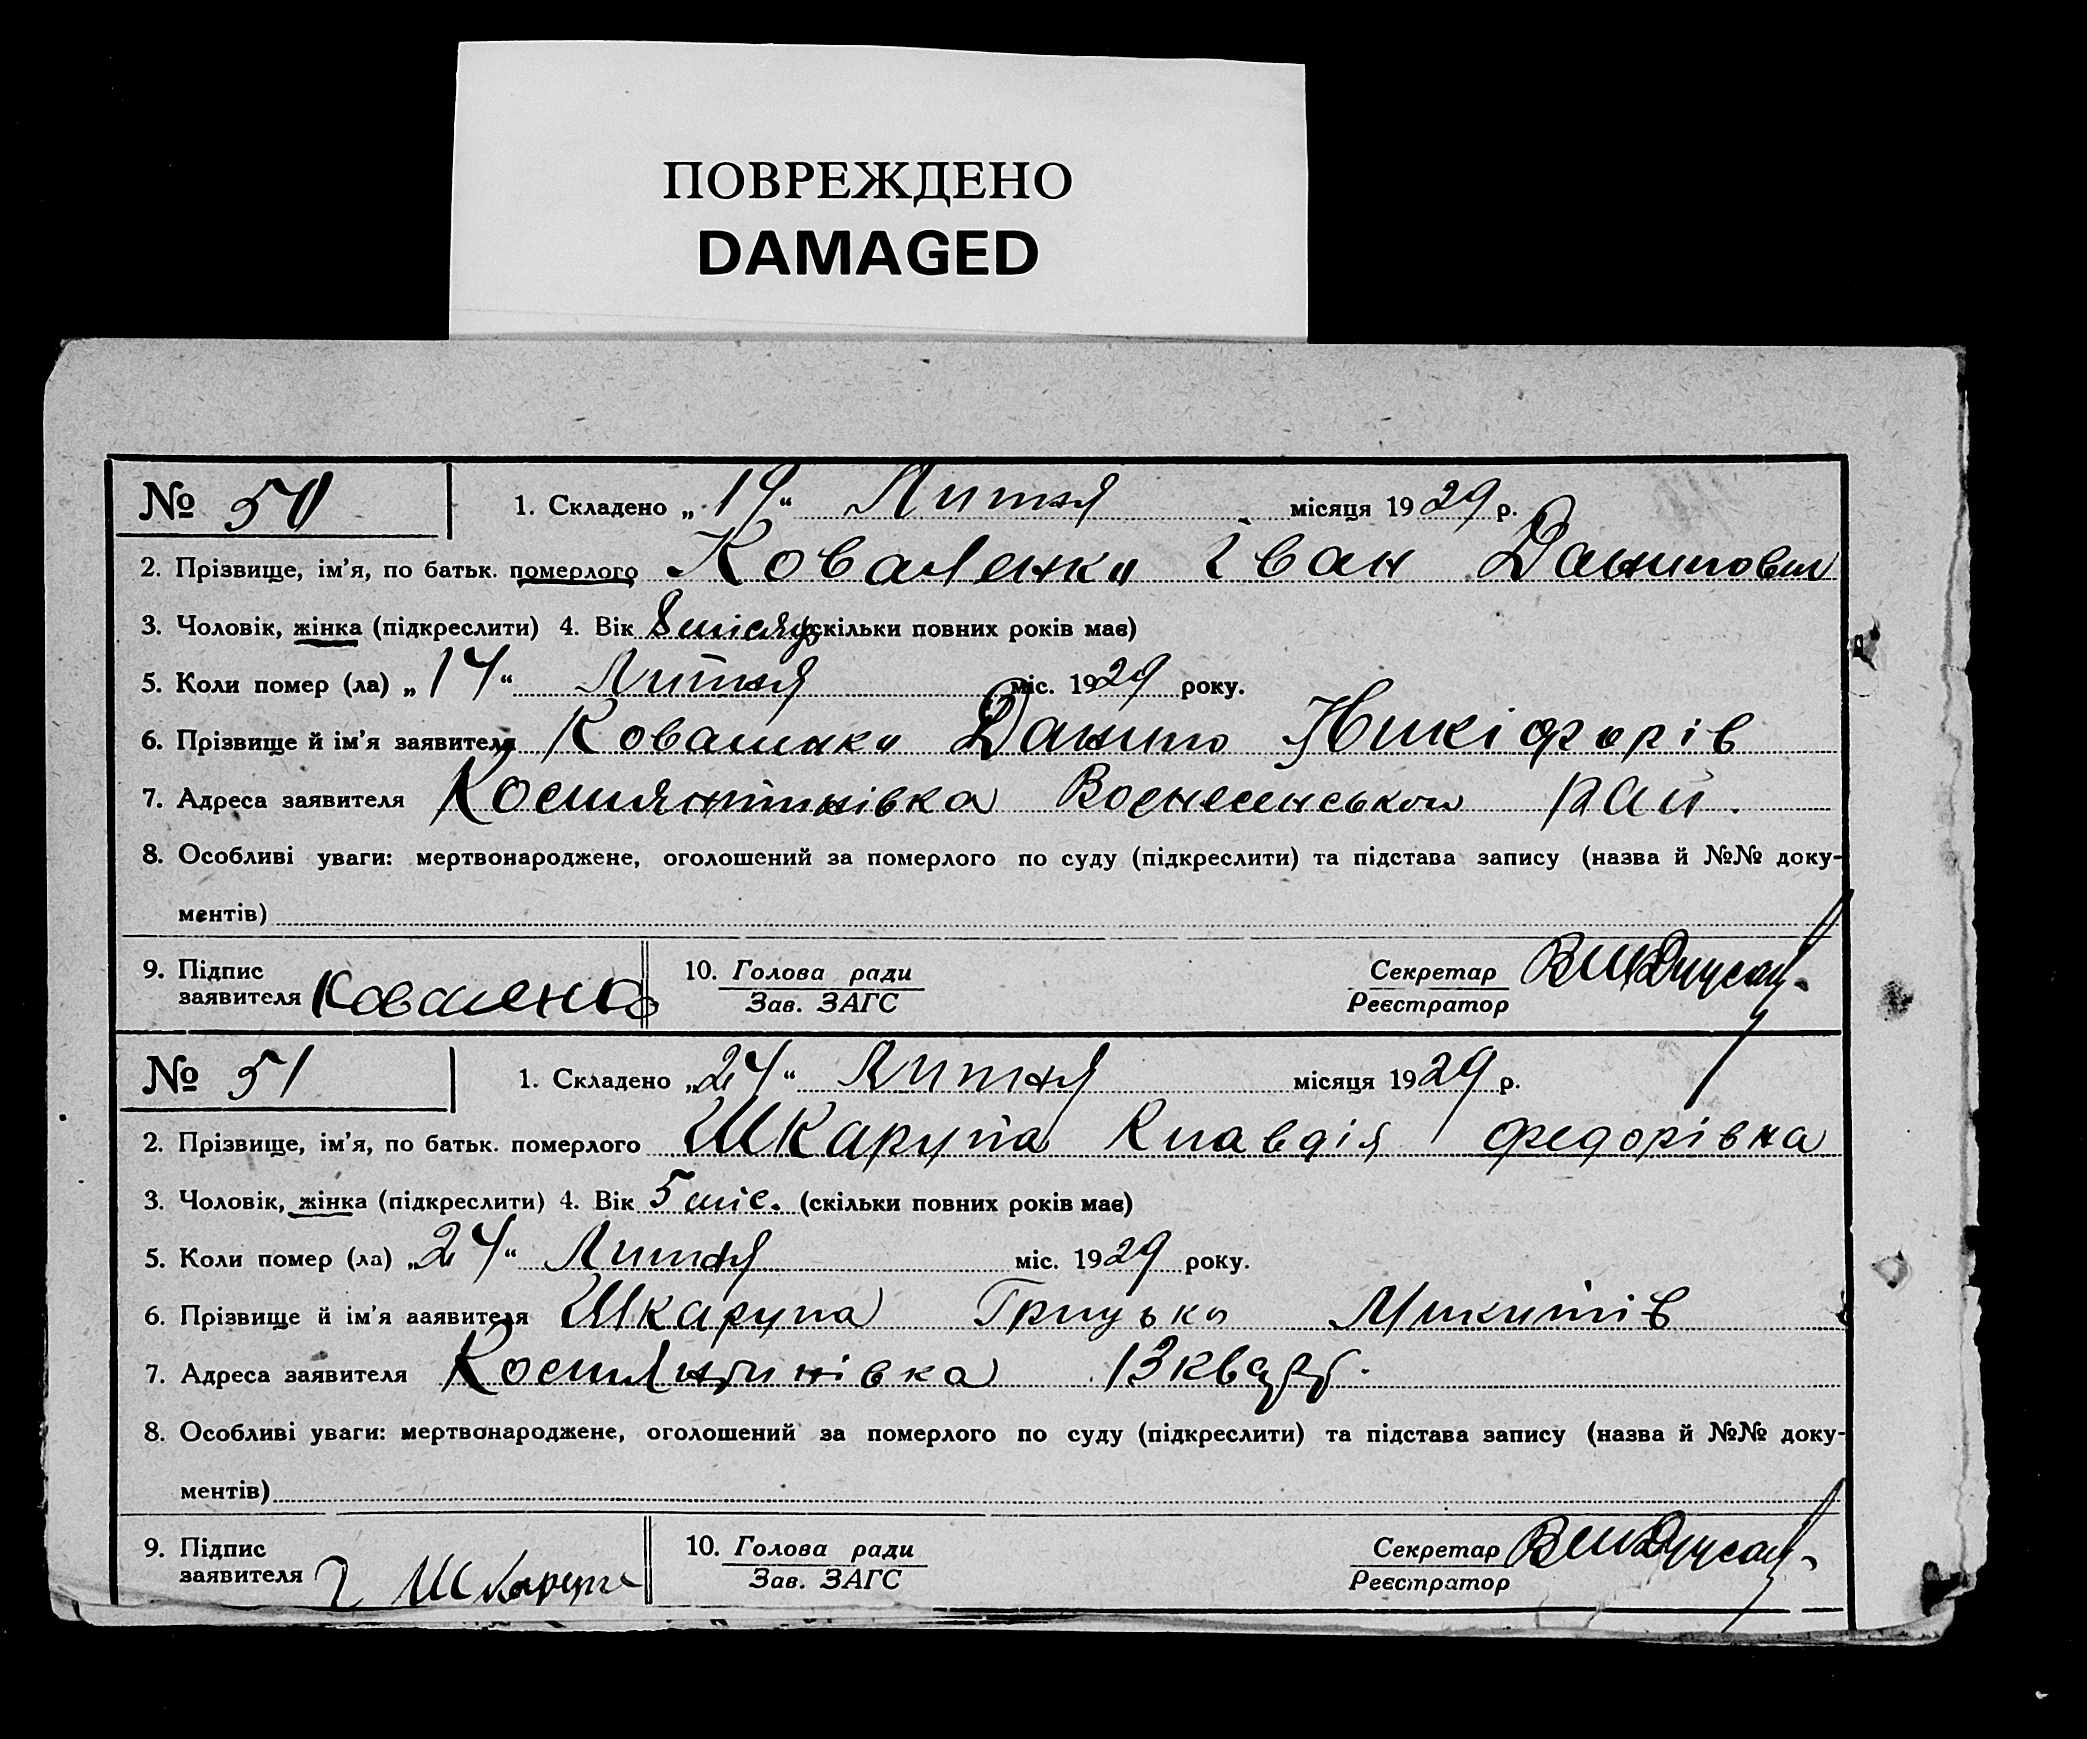 ПОВРЕЖДЕНО
DAMAGED
№ 50 1. Складено „19“ Лютня місяця 1929 р.
2. Прізвище, ім’я, по батьк. померлого Коваленко Іван Данилович
3. Чоловік, жінка (підкреслити) 4. Вік 8 місяців (скільки повних років має)
5. Коли помер (ла) „14“ Лютня міс. 1929 року.
6. Прізвище й ім’я заявителя Коваленко Данило Никіфорів
7. Адреса заявителя Костянтинівка Вознесенськои рай.
8. Особливі уваги: мертвонароджене, оголошений за померлого по суду (підкреслити) та підстава запису (назва й №№ доку-
ментів)
9. Підпис заявителя Коваленко 10. Голова ради Секретар
Зав. ЗАГС Реєстратор
№ 51 1. Складено „24“ Лютня місяця 1929 р.
2. Прізвище, ім’я, по батьк. померлого Шкарупа Клавдія Федорівна
3. Чоловік, жінка (підкреслити) 4. Вік 5 міс. (скільки повних років має)
5. Коли помер (ла) „24“ Лютня міс. 1929 року.
6. Прізвище й ім’я заявителя Шкарупа Грицько Микитів
7. Адреса заявителя Костянтинівка 13 кварт.
8. Особливі уваги: мертвонароджене, оголошений за померлого по суду (підкреслити) та підстава запису (назва й №№ доку-
ментів)
9. Підпис заявителя Г Шкарупа 10. Голова ради Секретар
Зав. ЗАГС Реєстратор